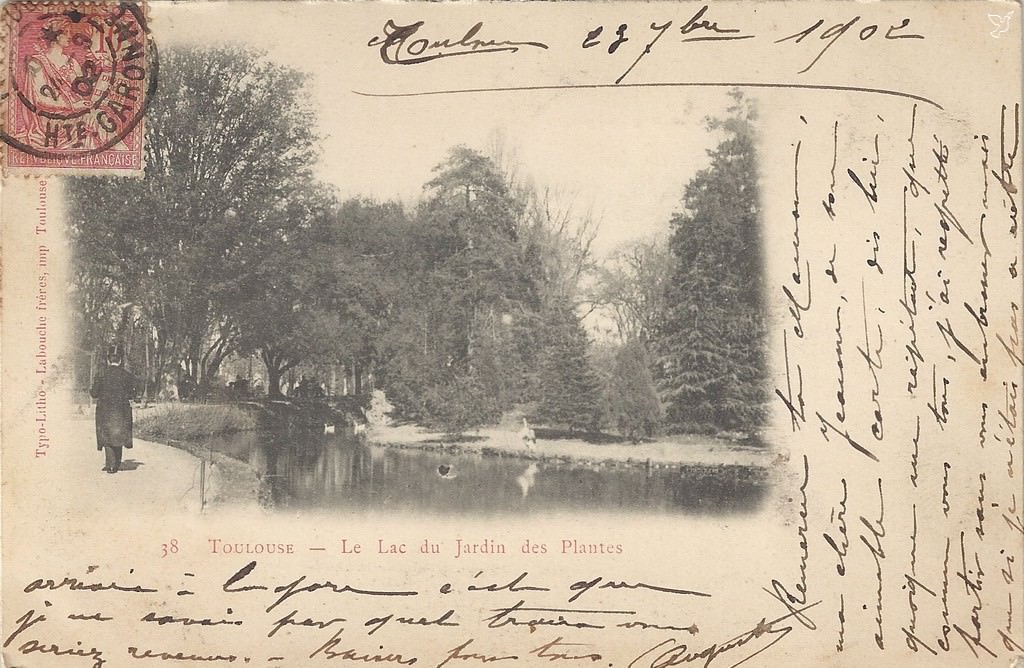 Toulouse 23 7bre 1902
HTE-GARONNE
RÉPUBLIQUE FRANÇAISE
Typo-Litho - Labouche frères, imp Toulouse
38 TOULOUSE — Le Lac du Jardin des Plantes
Remercie ta Maman,
ma chère Jeanne, de son
aimable carte, dis lui,
quoique me répétant, que
comme vous tous, j'ai regretté
partir sans vous embrasser mais
que si je n'étais pas à votre
arrivée à la gare c'est que
je ne savais par quel train vous
seriez revenus. - Baisers pour tous. Auguste